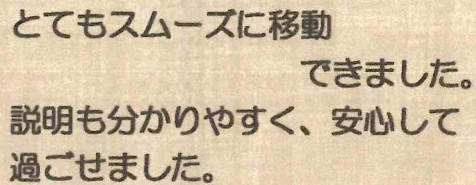 とてもスムーズに移動
できました。
説明も分かりやすく、安心して
過ごせました。